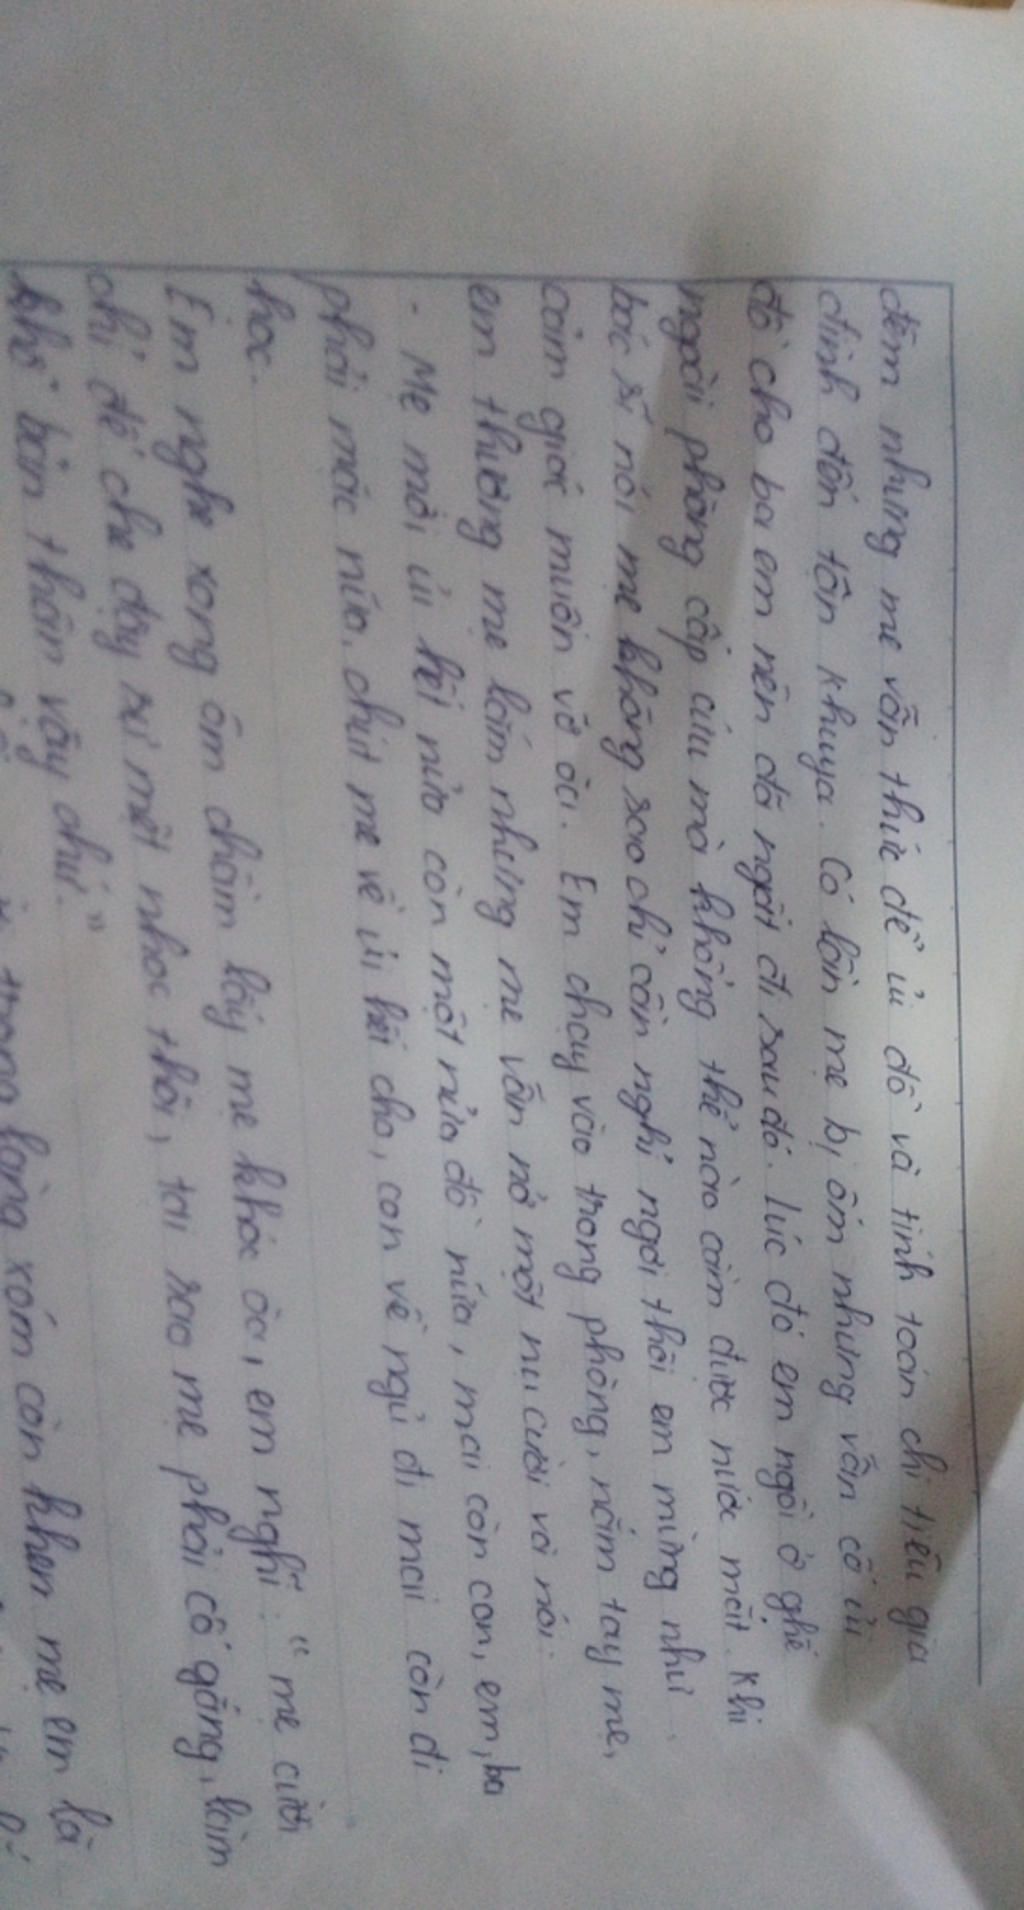 đêm nhưng mẹ vẫn thức để ủi đồ và tính toán chi tiêu gia
đình đến tận khuya. Có lần mẹ bị ốm nhưng vẫn cố ủi
đồ cho ba em nên đã ngất đi sau đó. lúc đó em ngồi ở ghế
ngoài phòng cấp cứu mà không thể nào cầm được nước mắt. Khi
bác sĩ nói mẹ không sao chỉ cần nghỉ ngơi thôi em mừng như
cảm giác muốn vỡ òa. Em chạy vào trong phòng, nắm tay mẹ,
em thương mẹ lắm nhưng mẹ vẫn nở một nụ cười và nói:
- Mẹ mới ủi hết nửa còn một nửa đồ nữa, mai còn con, em, ba
phải mặc nữa, chút mẹ về ủi hết cho, con về ngủ đi mai còn đi
học.
Em nghe xong ôm chầm lấy mẹ khóc òa, em nghĩ: "mẹ cười
chỉ để che đậy sự mệt nhọc thôi, tại sao mẹ phải cố gắng, làm
khổ bản thân vậy chứ."
trong làng xóm còn khen mẹ em là